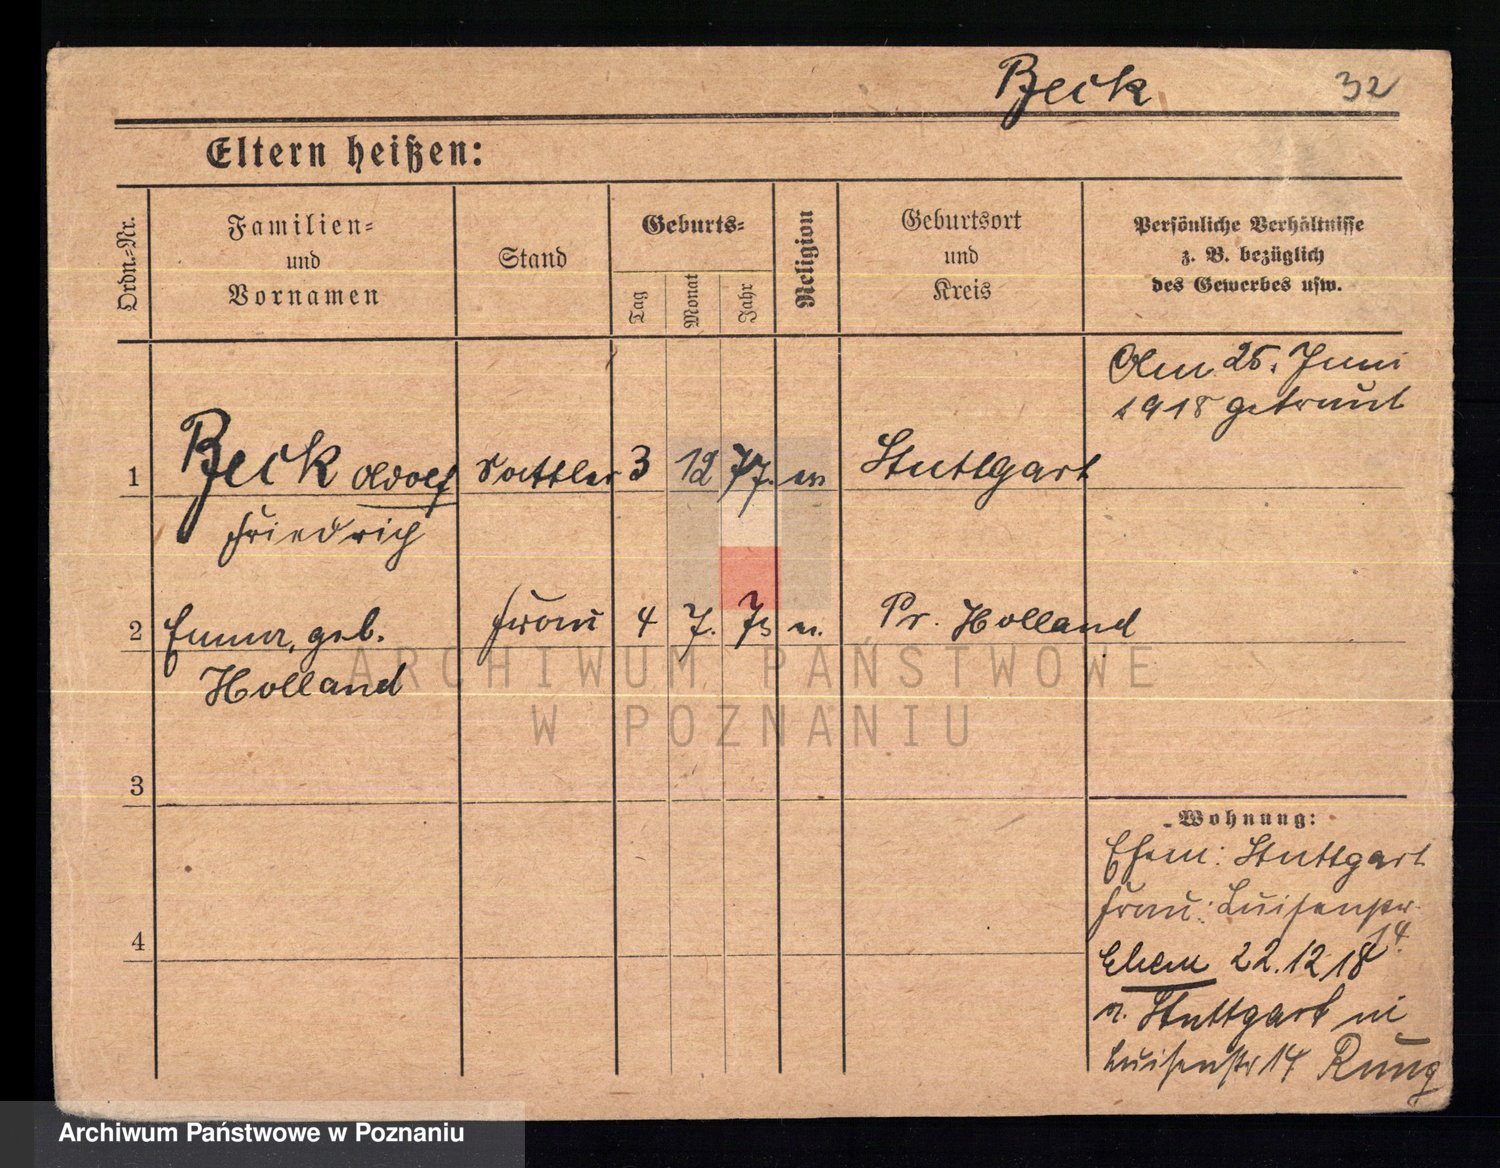 Beck 32
Eltern heißen:
Ordn.-Nr.
Familien-
und
Vornamen
Stand
Geburts-
Tag
Monat
Jahr
Religion
Geburtsort
und
Kreis
Persönliche Verhältnisse
z. B. bezüglich
des Gewerbes usw.
Am 25. Juni
1918 getraut
1 Beck Adolf Sattler 3 12 77. ev Stuttgart
Friedrich
2 Emma, geb. Frau 4 7. 73 Pr. Holland
Holland
3
4
Wohnung:
Ehem: Stuttgart
Frau: Luisenstr.
14.
Ehem 22.12 18
v. Stuttgart
Luisenstr 14
ARCHIWUM PAŃSTWOWE
W POZNANIU
Archiwum Państwowe w Poznaniu